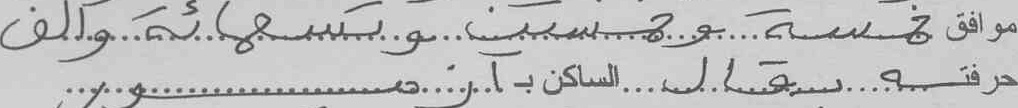 موافق خمسة وخمسين وتسعمائة وألف
حرفته بقال الساكن بـ